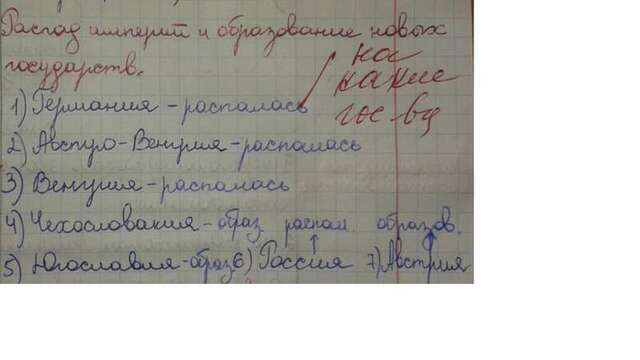 Распад империй и образование новых
государств.
на
какие
гос-ва
1) Германия - распалась
2) Австро-Венгрия - распалась
3) Венгрия - распалась
4) Чехословакия - образ распал. образов.
5) Югославия - образ 6) Россия 7) Австрия